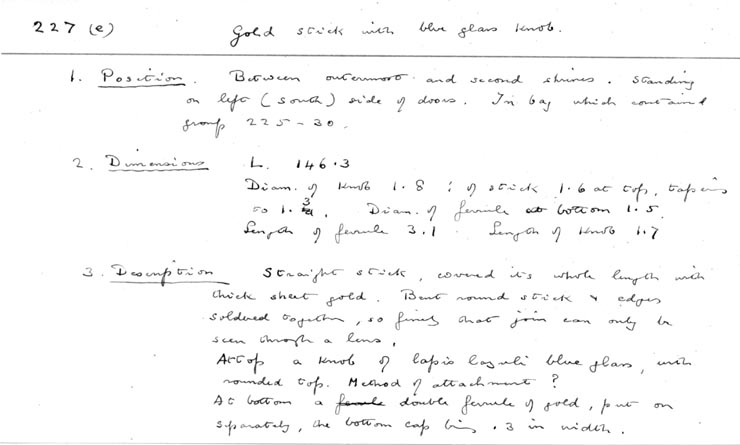 227 (e) Gold stick with blue glass knob.
1. Position. Between outermost and second shrines. Standing
on left (south) side of doors. In bay which contained
group 225-30.
2. Dimensions L. 146.3
Diam. of knob 1.8 : of stick 1.6 at top, tapering
to 1.3. Diam. of ferrule at bottom 1.5.
Length of ferrule 3.1. Length of knob 1.7
3. Description Straight stick, covered its whole length with
thick sheet gold. Bent round stick & edges
soldered together, so finely that join can only be
seen through a lens.
At top a knob of lapis lazuli blue glass, with
rounded top. Method of attachment?
At bottom a ferrule double ferrule of gold, put on
separately, the bottom cap being .3 in width.